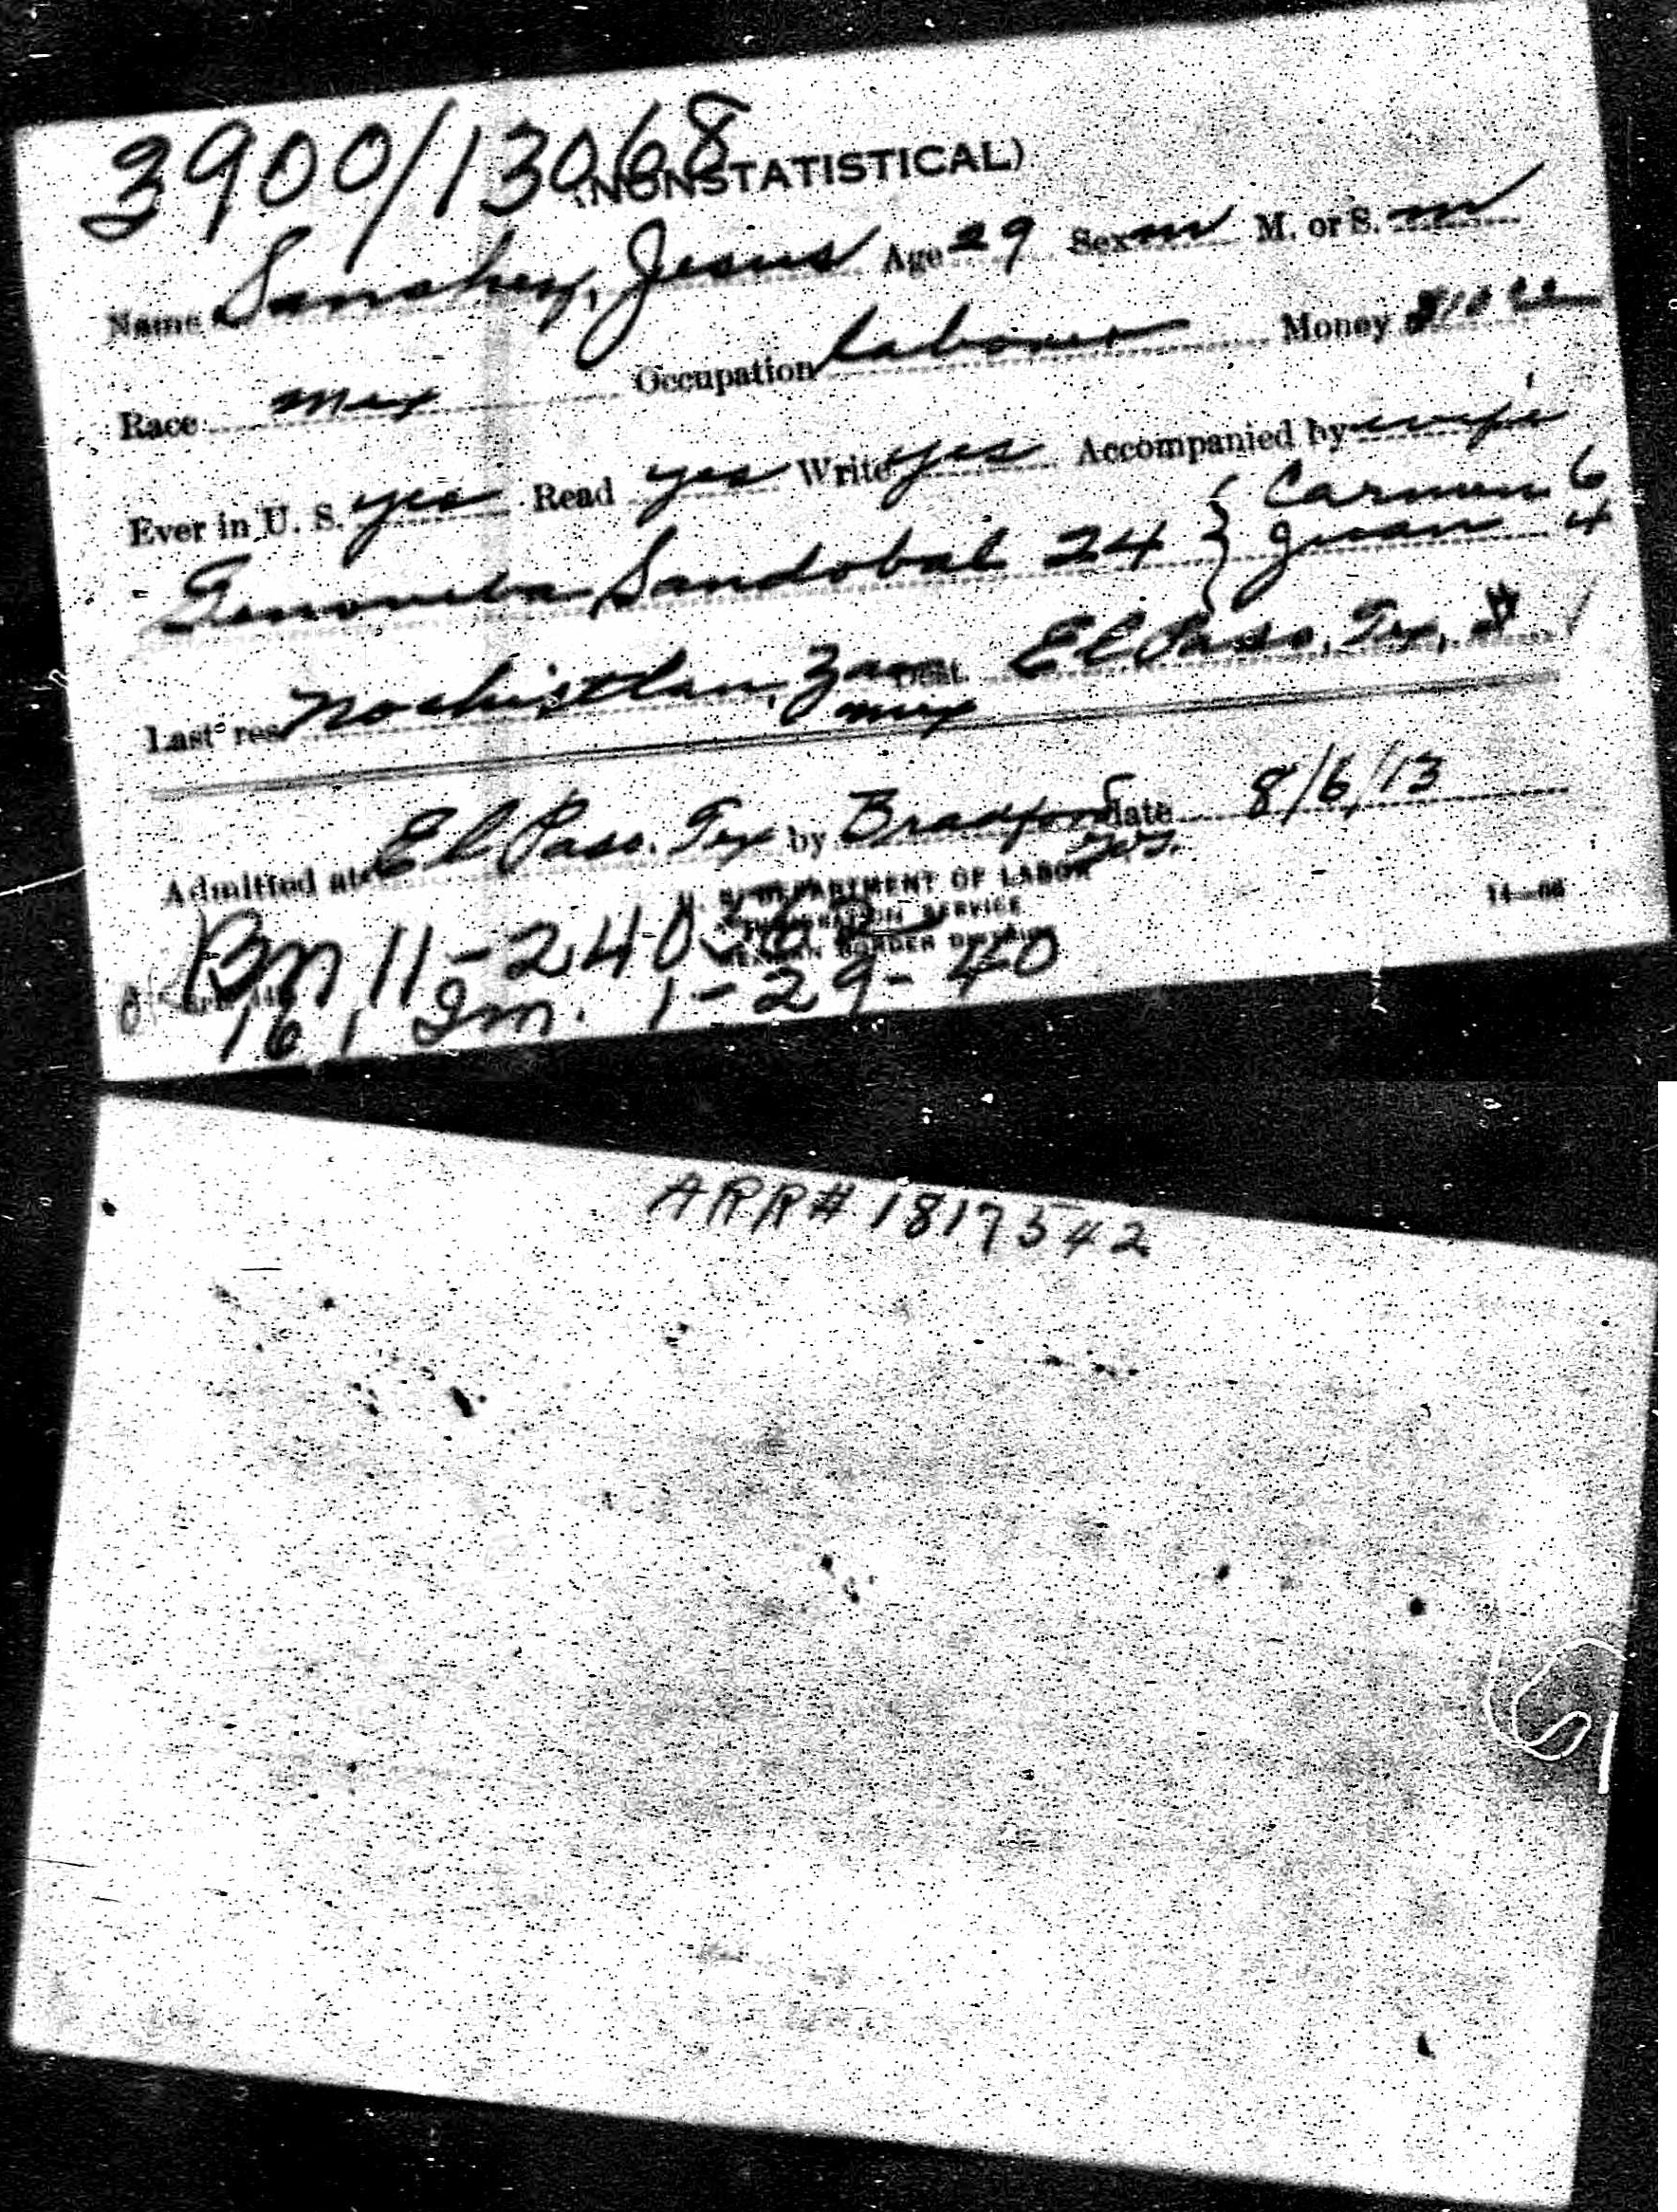 3900/13068
(NONSTATISTICAL)
Name Sanchez, Jesus Age 29 Sex m M. or S. m
Race Mex Occupation Laborer Money $10
Ever in U. S. yes Read yes Write yes Accompanied by wife
Genoveba Sandobal 24 { Carmen 6
Juan 4
Last res Nochistlan, Zac Dest. El Paso, Tex,
Mex
Admitted at El Paso. Tex by Bradford date 8/6/13
U. S. DEPARTMENT OF LABOR
IMMIGRATION SERVICE
MEXICAN BORDER DISTRICT
14-
Bn 11-240
161 Im. 1-29-40
ARR# 1817542